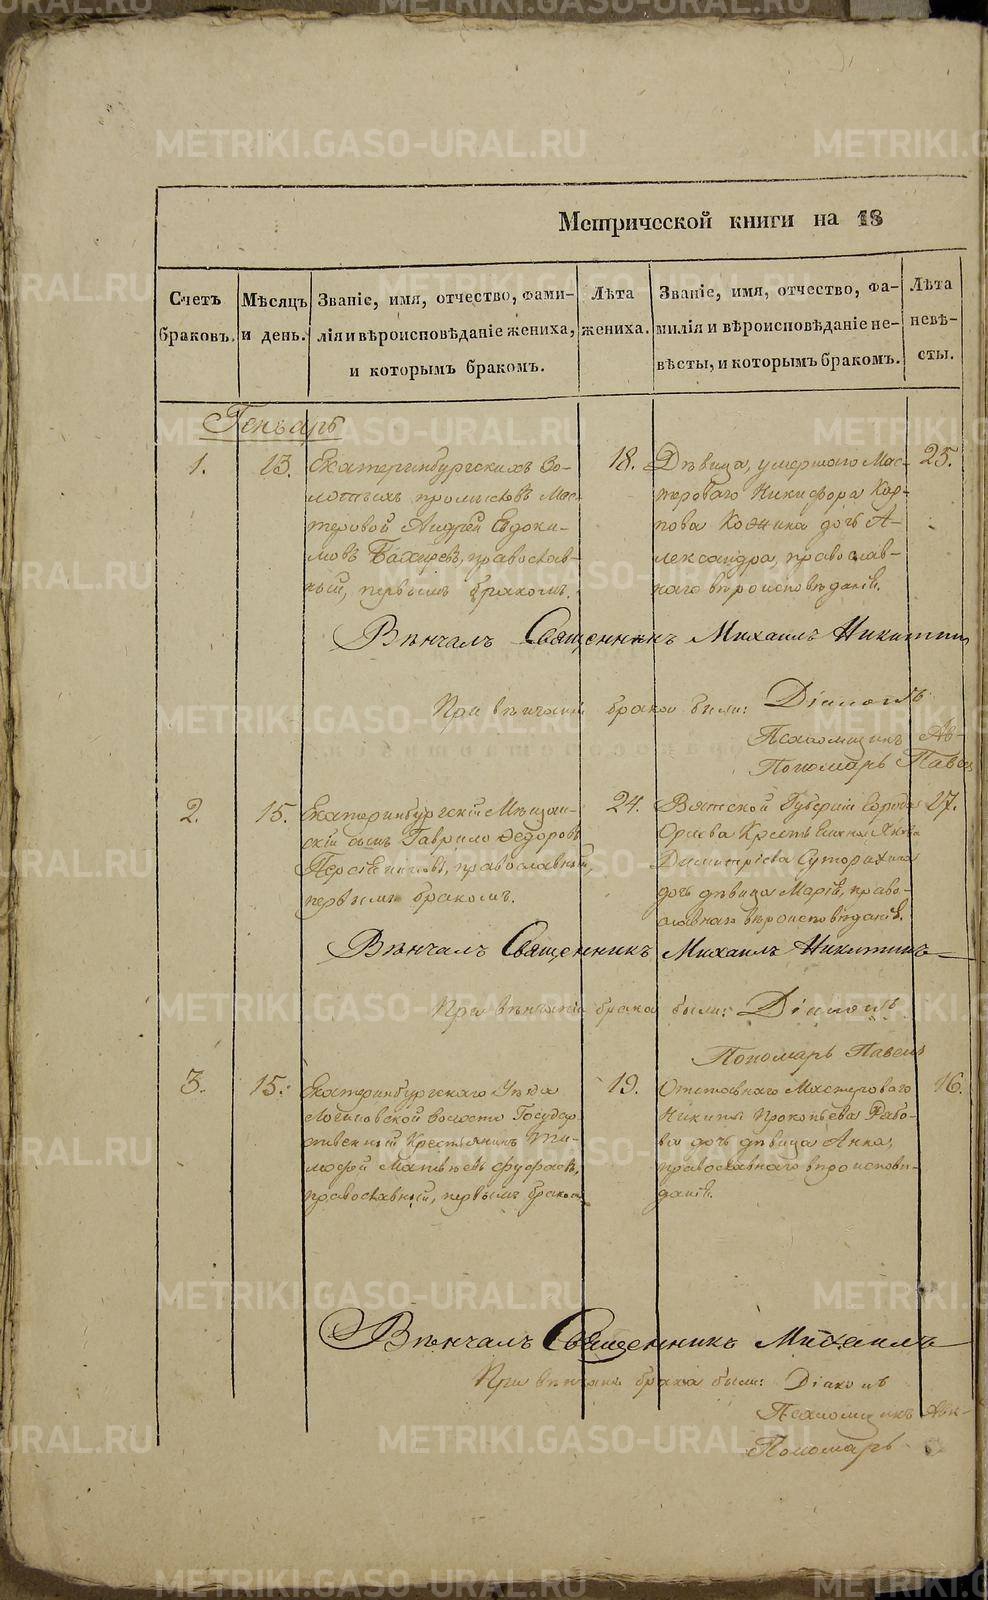 Метрической книги на 18
Счетъ браковъ.
Мѣсяцъ и день.
Званіе, имя, отчество, фами-
лія и вѣроисповѣданіе жениха,
и которымъ бракомъ.
Лѣта жениха.
Званіе, имя, отчество, фа-
милія и вѣроисповѣданіе не-
вѣсты, и которымъ бракомъ.
Лѣта невѣ-
сты.
Генварь
1. 13.
Екатеринбургскихъ Зо-
лотыхъ промысловъ Мас-
теровой Андрей Евдоки-
мовъ православ-
ный, первымъ бракомъ.
18.
Дѣвица, умершаго Мас-
троваго Никифора Кар-
пова дочь А-
лександра, православ-
наго вѣроисповѣданія.
25.
Вѣнчалъ Священникъ Михаилъ Никитин
При вѣнчаніи брака были: Діаконъ
Псаломщикъ Ав-
Пономарь Павел
2. 15.
Екатеринбургскій Мѣщан-
скій сынъ Гаврило Ѳедоровъ
православный,
первымъ бракомъ.
24.
Вятской Губерніи Города
Орлова Крестьянина Якова
Димитріева
дочь дѣвица Марія, право-
славнаго вѣроисповѣданія.
27.
Вѣнчалъ Священникъ Михаилъ Никитинъ
При вѣнчаніи брака были: Діаконъ
Пономарь Павелъ
3. 15.
Екатеринбургскаго Уѣзда
волости Государ
ственный Крестьянинъ Ти-
мофей Матвѣевъ
православный, первымъ браком
19.
Отставнаго Мастероваго
Никиты Прокопьева Рябо-
ва дочь дѣвица Анна,
православнаго вѣроисповѣ-
данія.
16.
Вѣнчалъ Священникъ Михаилъ
При вѣнчаніи брака были: Діаконъ
Псаломщикъ Ав-
Пономарь
METRIKI.GASO-URAL.RU